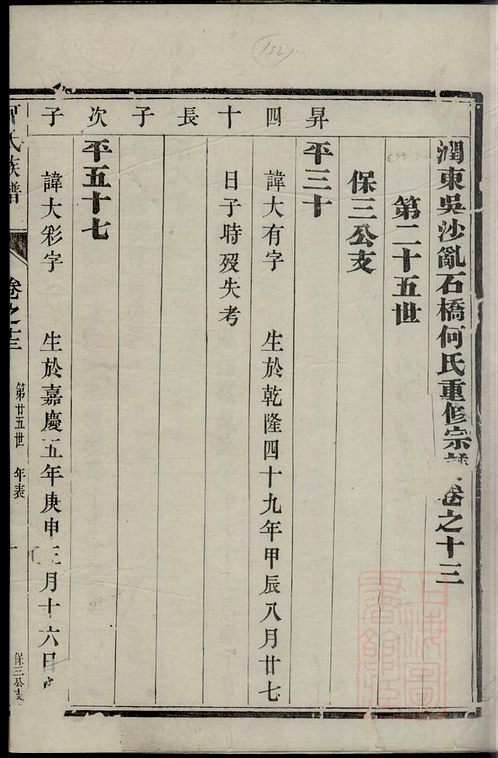 152
潤東吳沙亂石橋何氏重修宗譜卷之十三
第二十五世
保三公支
昇四十長子
平三十
諱大有字 生於乾隆四十九年甲辰八月廿七
日子時歿失考
次子
平五十七
諱大彩字 生於嘉慶五年庚申三月十六日
何氏族譜 卷之十三 第廿五世 年表 一 保三公支